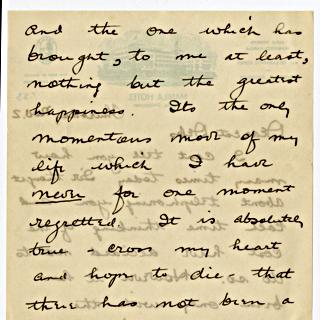 And the one which has
brought, to me at least,
nothing but the greatest
happiness. Its the only
momentous move of my
life which I have
never for one moment
regretted. It is absolutely
true - cross my heart
and hope to die - that
there has not been a